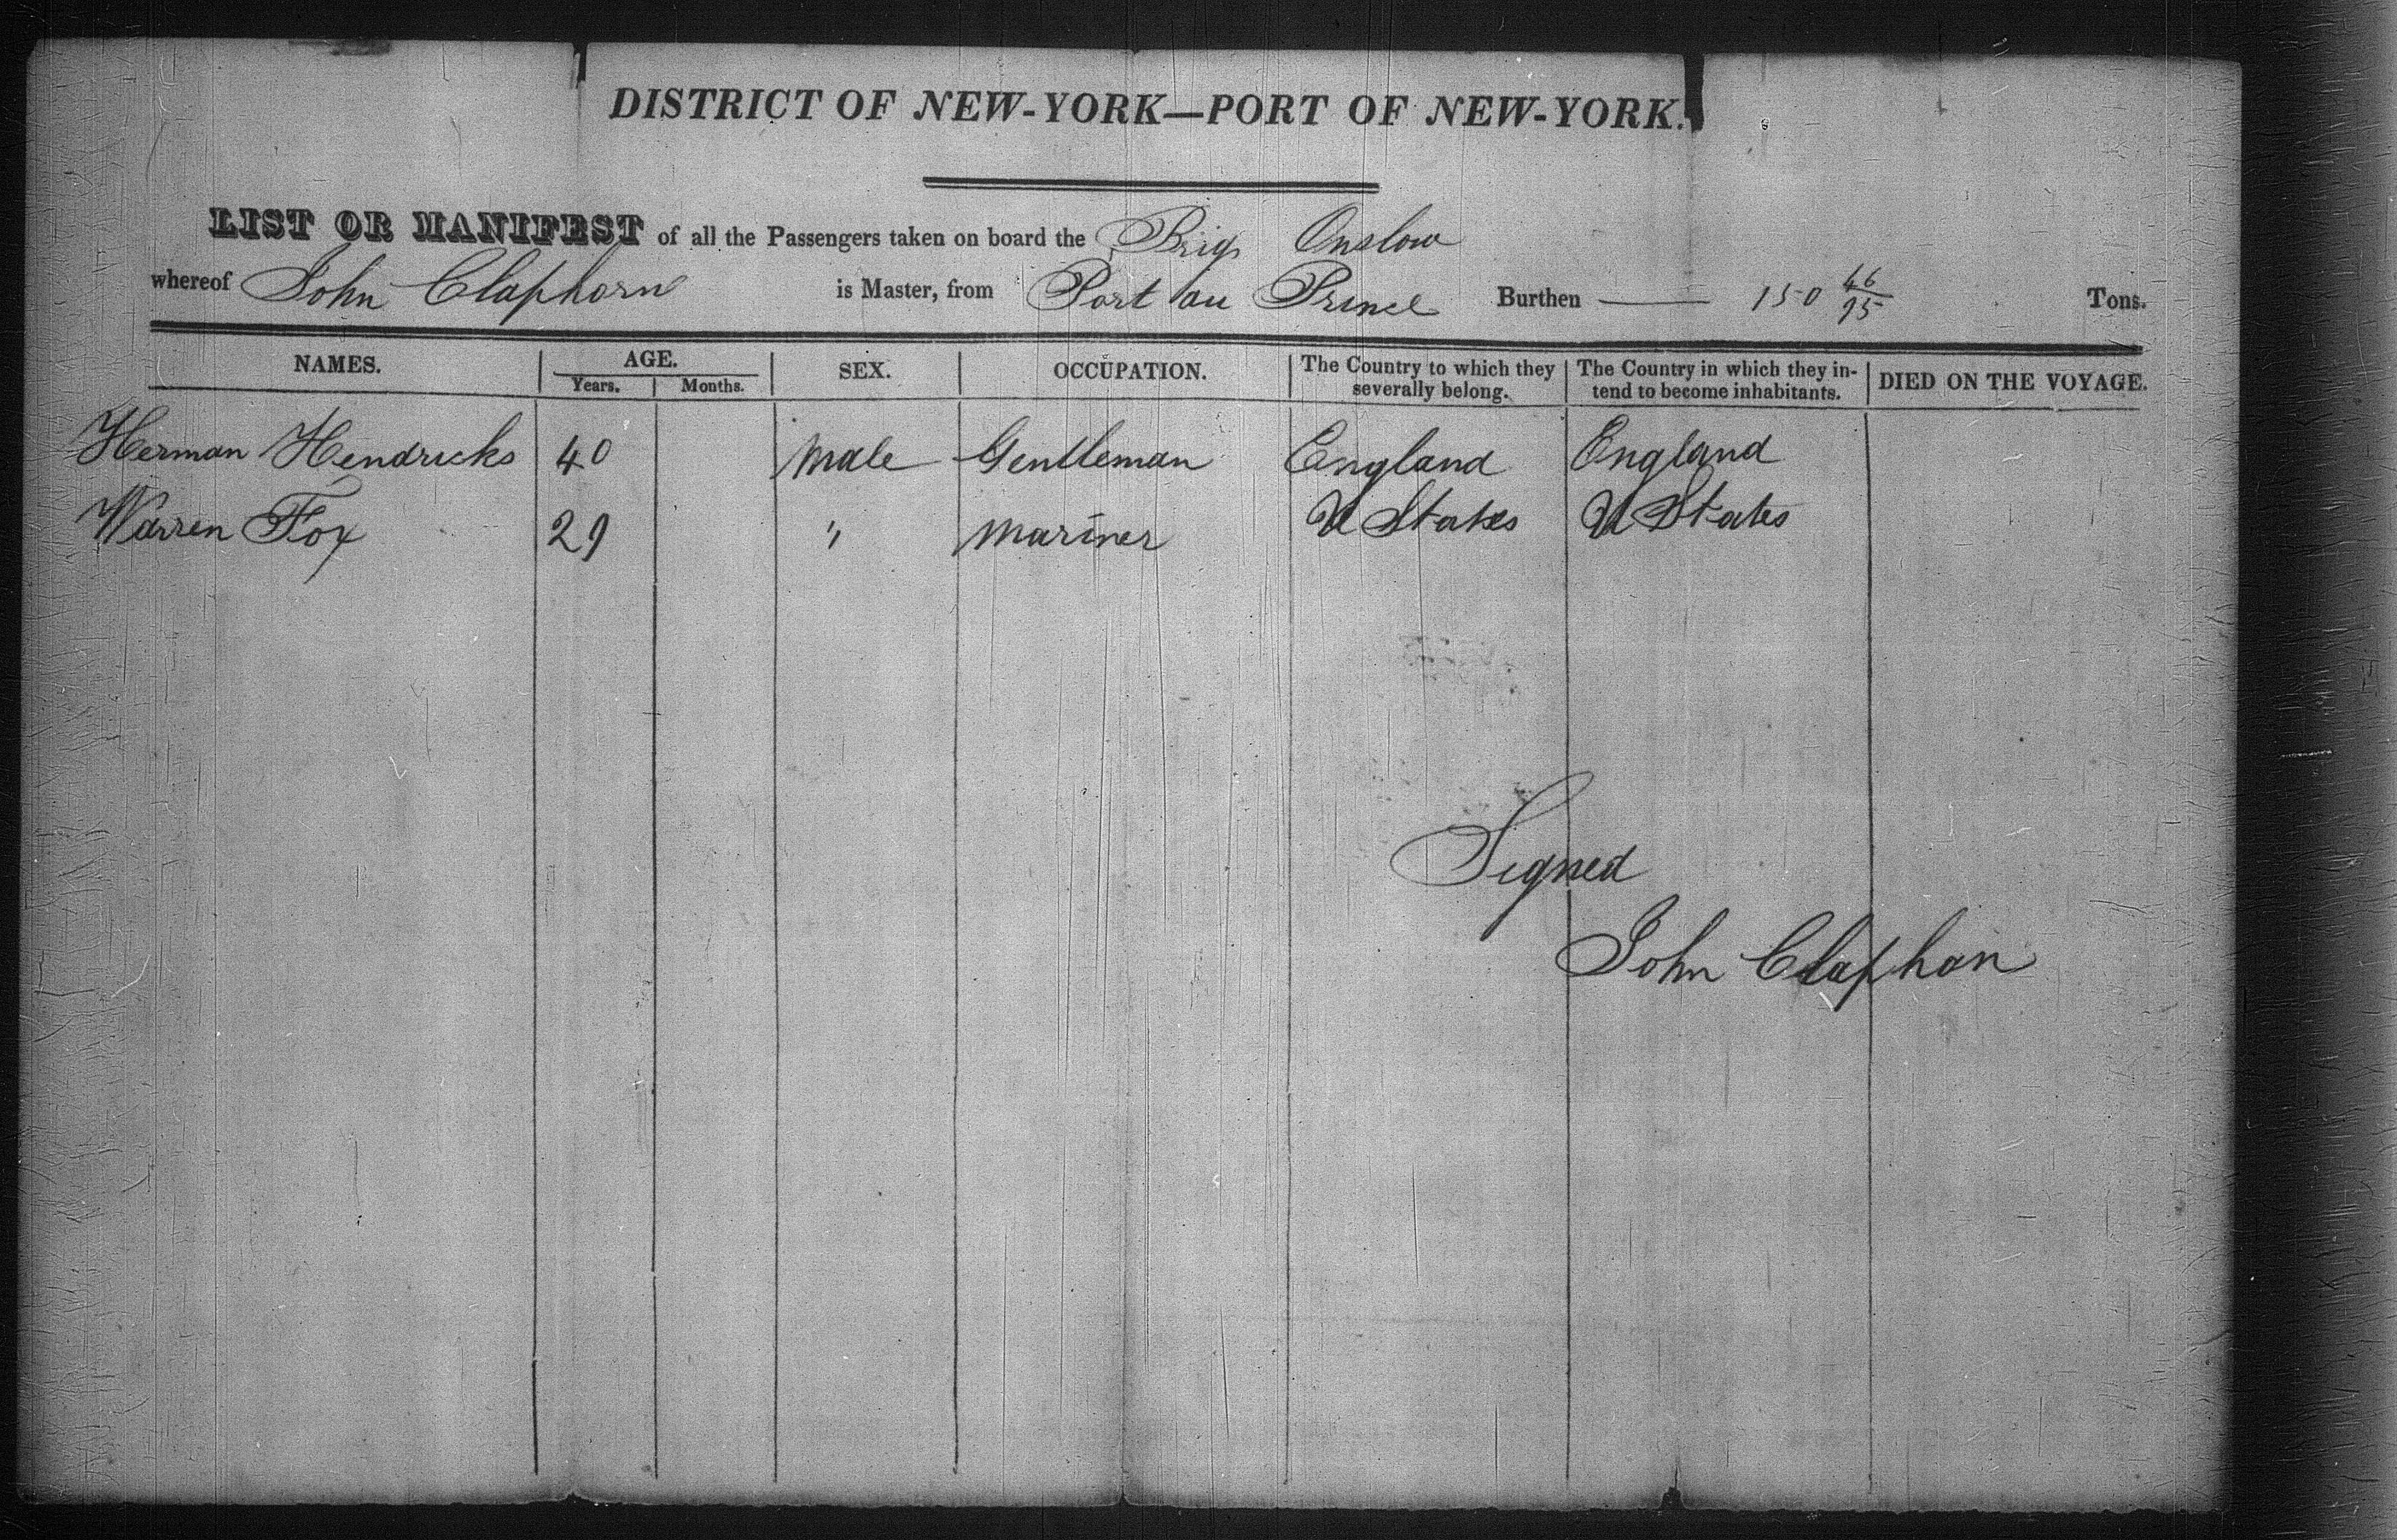 DISTRICT OF NEW-YORK—PORT OF NEW-YORK.
LIST OR MANIFEST of all the Passengers taken on board the Brig Onslow
whereof John Claphorn is Master, from Port au Prince Burthen — 150 46/95 Tons.
NAMES. AGE. SEX. OCCUPATION. The Country to which they severally belong. The Country in which they intend to become inhabitants. DIED ON THE VOYAGE.
Years. Months.
Herman Hendricks 40 Male Gentleman England England
Warren Fox 29 " Mariner U States U States
Signed
John Claphan